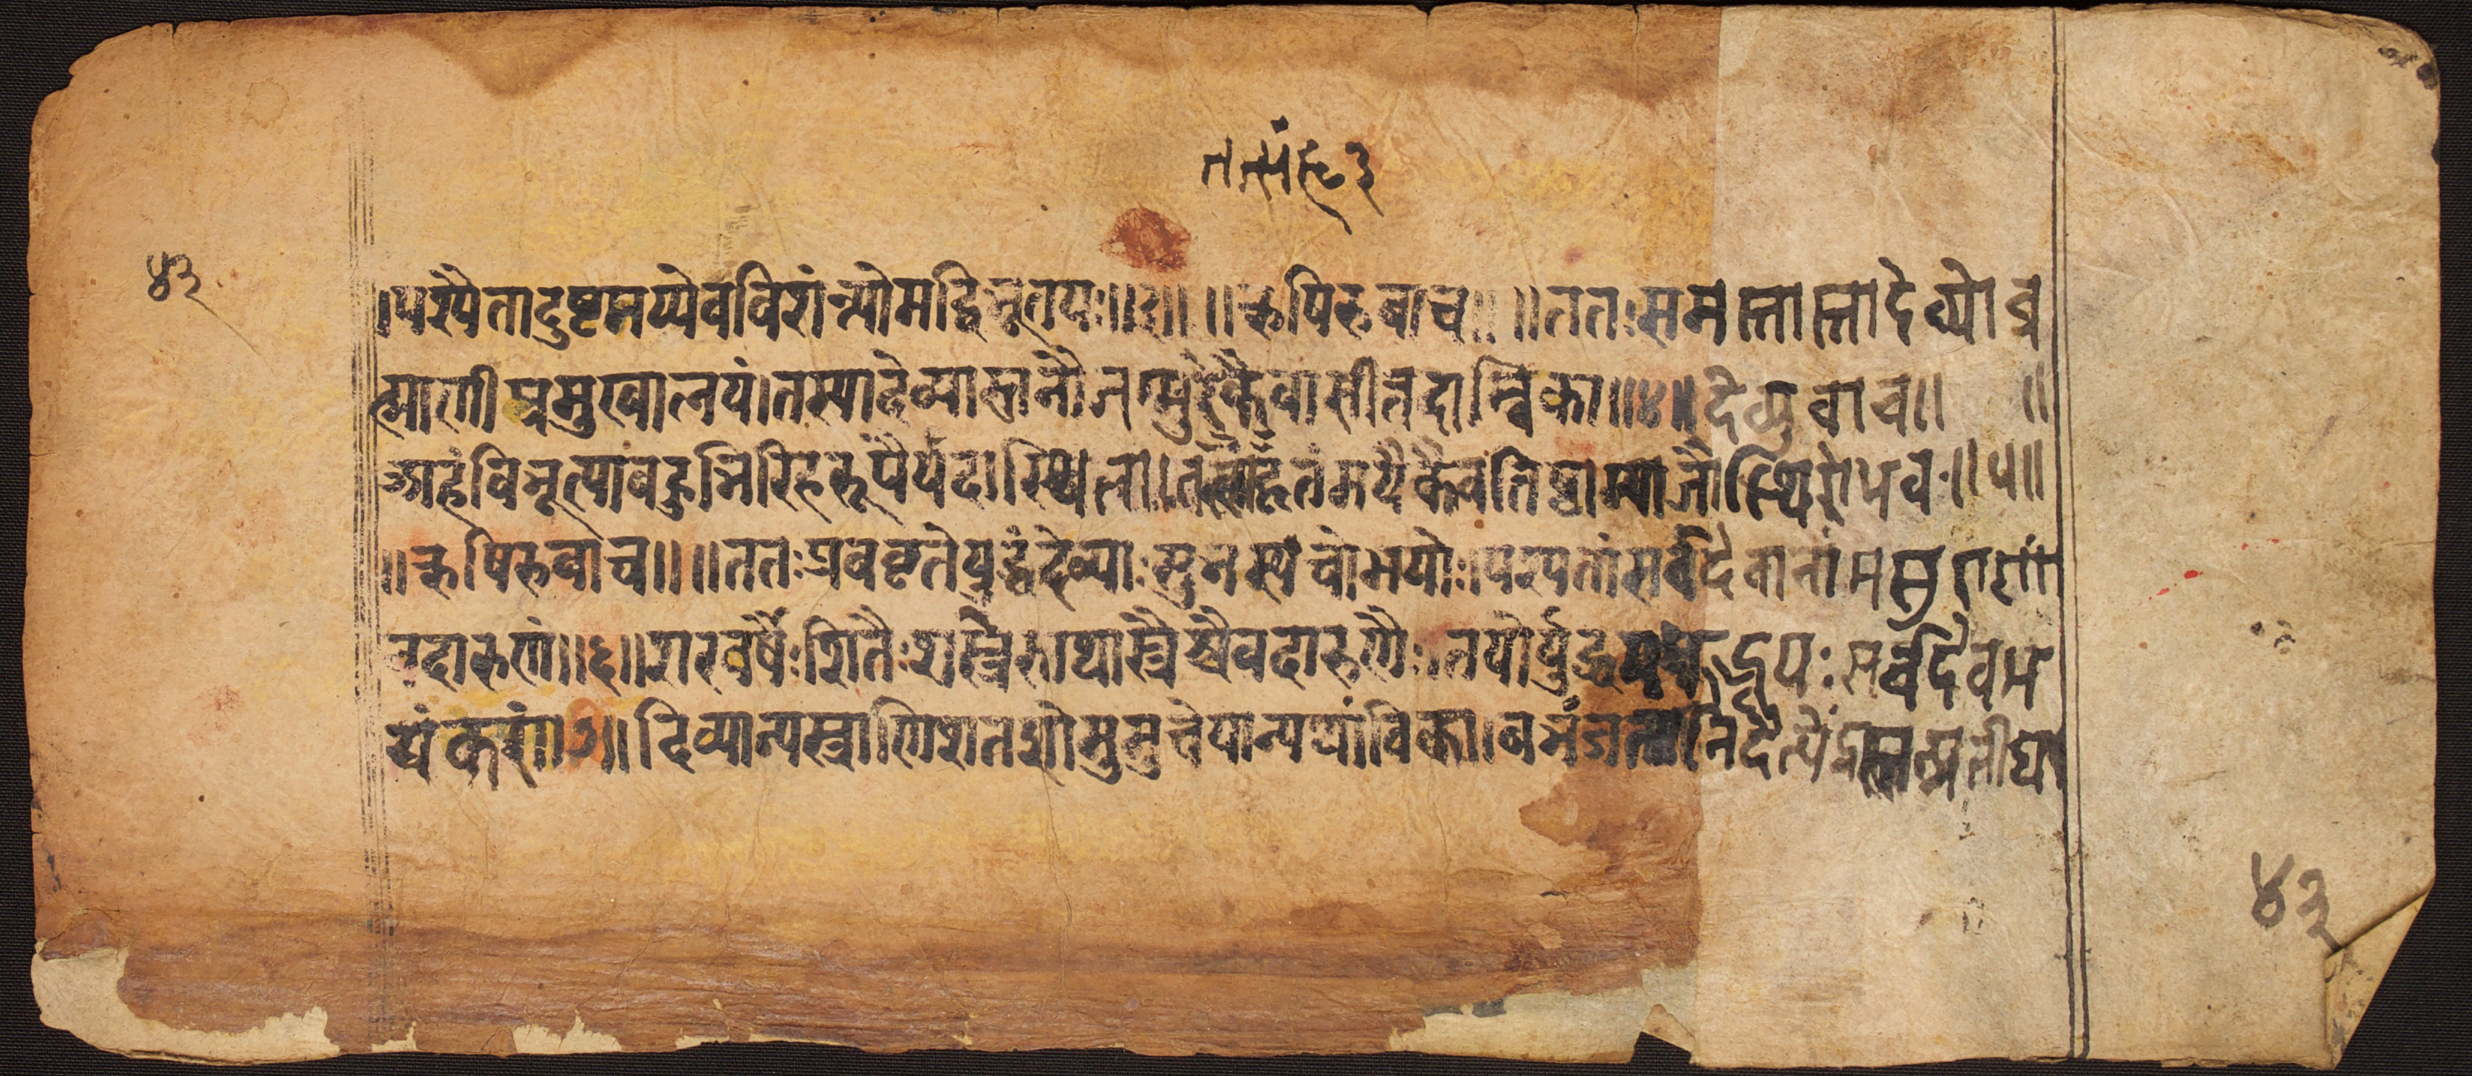 ४३
।पश्यैता दुष्ट मय्येव विशंन्त्यो मद्विभूतयः॥३॥ ॥ऋषिरुवाच॥ ॥ततः समस्तास्ता देव्यो ब्र
ह्माणीप्रमुखा लयं।तस्या देव्यास्तनौ जग्मुरेकैवासीत्तदाम्बिका॥४॥ देव्युवाच॥ ॥
अहं विभूत्या बहुभिरिह रूपैर्यदास्थिता।तत्संहृतं मयैकैव तिष्ठाम्याजौ स्थिरो भव॥५॥
॥ऋषिरुवाच॥ ॥ततः प्रववृते युद्धं देव्याः सुम्भस्य चोभयोः।पश्यतां सर्वदेवानामसुराणां
च दारुणं॥६॥शरवर्षैः शितैः शस्त्रैस्तथास्त्रैश्चैव दारुणैः।तयोर्युद्धमभूद्भूयः सर्वदेवभ
यंकरं॥७॥दिव्यान्यस्त्राणि शतशो मुमुचे यान्यथांविका।बभंज तानि दैत्येंद्रस्तत्प्रतीघा
४३